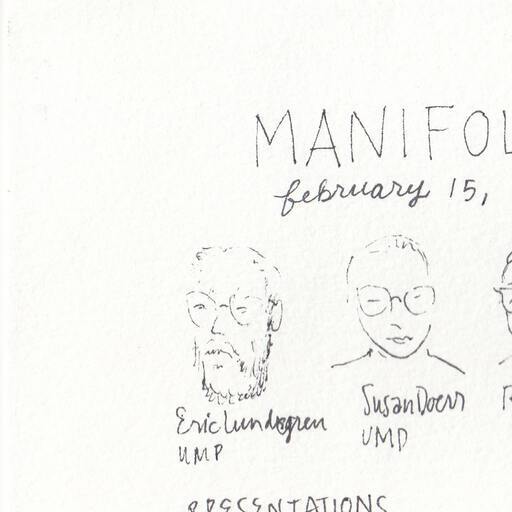 MANIFOL
february 15,
Eric Lundgren
UMP
Susan Doerr
UMD
PRESENTATIONS